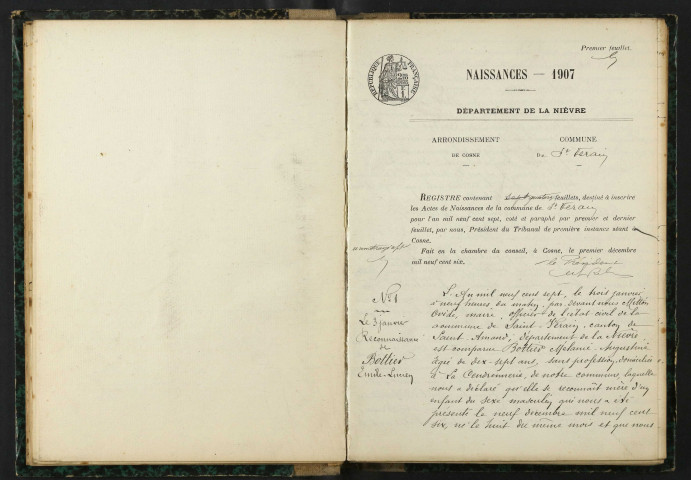 Premier feuillet.
RÉPUBLIQUE FRANÇAISE
NAISSANCES — 1907
DÉPARTEMENT DE LA NIÈVRE
ARRONDISSEMENT COMMUNE
DE COSNE De St Verain
REGISTRE contenant feuillets, destiné à inscrire
les Actes de Naissances de la commune de St Verain
pour l'an mil neuf cent sept, coté et paraphé par premier et dernier
feuillet, par nous, Président du Tribunal de première instance séant à
Cosne.
Fait en la chambre du conseil, à Cosne, le premier décembre
mil neuf cent six.
Le Président
No 1
Le 3 janvier
Reconnaissance
de
Bottier
Emile-Lucien
L'An mil neuf cent sept, le trois janvier
à neuf heures du matin, par devant nous Millon
Ovide, maire, officier de l'état civil de la
commune de Saint-Verain, canton de
Saint Amand, département de la Nièvre
est comparue Bottier Mélanie Augustine
âgée de dix-sept ans, sans profession, domiciliée
à La Cendronnerie, de notre commune, laquelle
nous a déclaré qu'elle se reconnait mère d'un
enfant du sexe masculin qui nous a été
présenté le neuf décembre mil neuf cent
six, né le huit du même mois et que nous